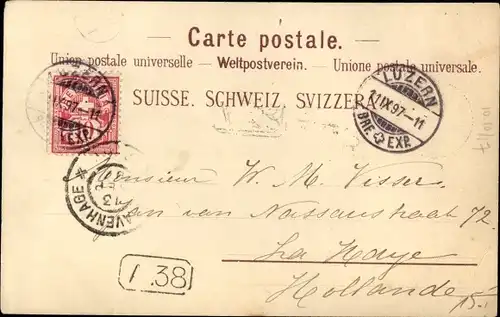 Carte postale.
Union postale universelle — Weltpostverein. — Unione postale universale.
SUISSE. SCHWEIZ. SVIZZERA.
LUZERN
IX 97-11
EXP.
LUZERN
11 IX 97-11
BRF. EXP.
AVENHAGE
Monsieur W. M. Visser
Jan van Nassaustraat 72.
La Haye
Hollande
15.-
1.38